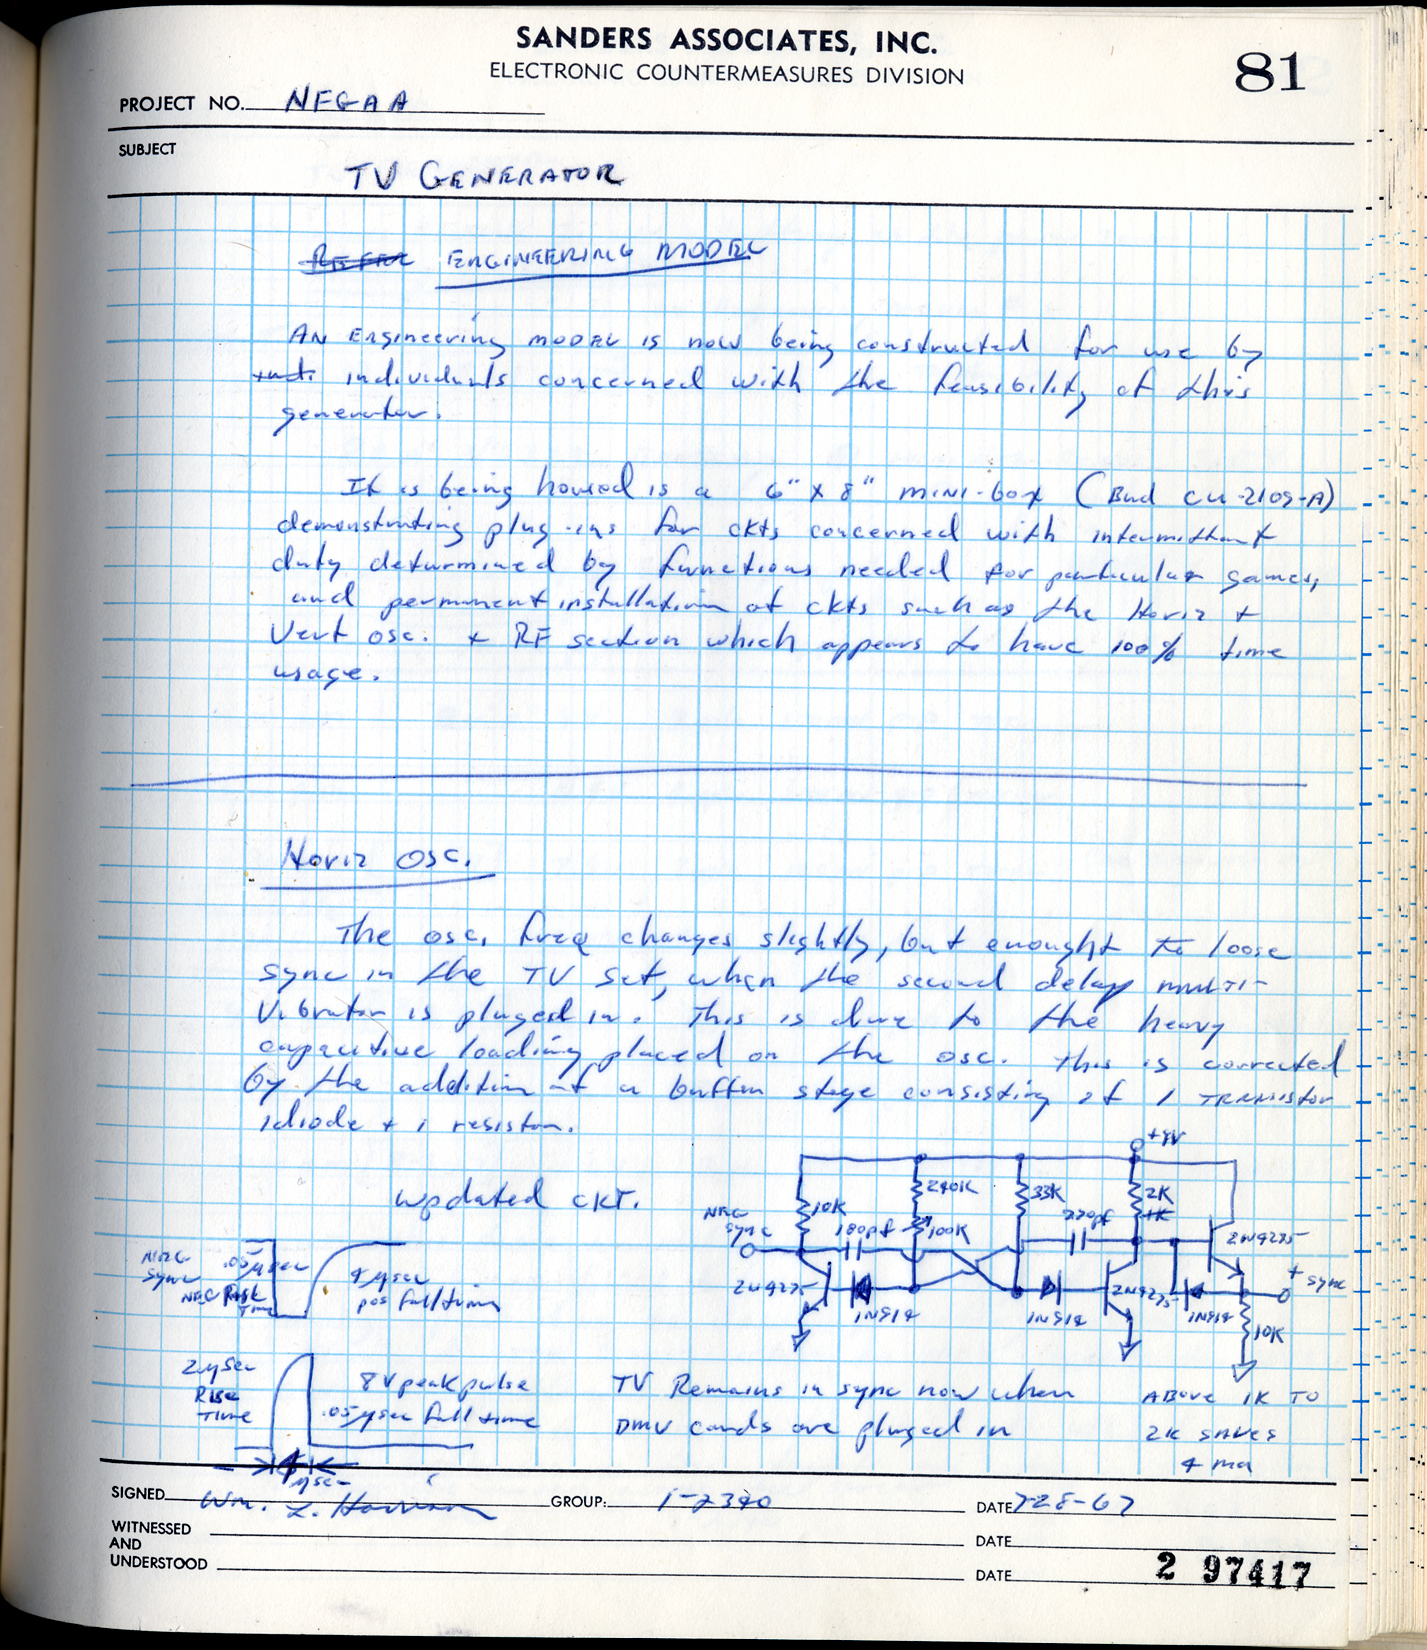 SANDERS ASSOCIATES, INC.
ELECTRONIC COUNTERMEASURES DIVISION
81
PROJECT NO. NEGAA
SUBJECT
TV GENERATOR
ENGINEERING MODEL
AN Engineering MODEL is now being constructed for use by
individuals concerned with the feasibility of this
generator.
It is being housed is a 6" x 8" MINI-box (Bud CU-2109-A)
demonstrating plug-ins for ckts concerned with intermittant
duty determined by functions needed for particular games,
and permanent installation of ckts such as the Horiz +
Vert osc. + RF section which appears to have 100% time
usage.
Horiz OSC.
The osc. freq changes slightly, but enought to loose
sync in the TV set, when the second delay MULTI-
Vibrator is pluged in. This is due to the heavy
capacitive loading placed on the osc. This is corrected
by the addition of a buffer stage consisting of 1 TRANSistor
1diode + 1 resistor.
updated CKT.
+8V
10K
240K
33K
2K
1K
NEG
sync
180pf
100K
220pf
2N4275
2N4275
1N914
1N914
2N4275
1N914
+ sync
10K
NEG
Sync
.05μsec
NEG
Time
4μsec
pos fall time
2μsec
Rise
Time
8V peak pulse
.05μsec fall time
4μsec
TV Remains in sync now when
DMV cards are pluged in
ABOVE 1K TO
2K SAVES
4 ma
SIGNED Wm. L. Harrison GROUP: 1-2340 DATE 7-28-67
WITNESSED
AND
UNDERSTOOD
DATE
DATE
2 97417